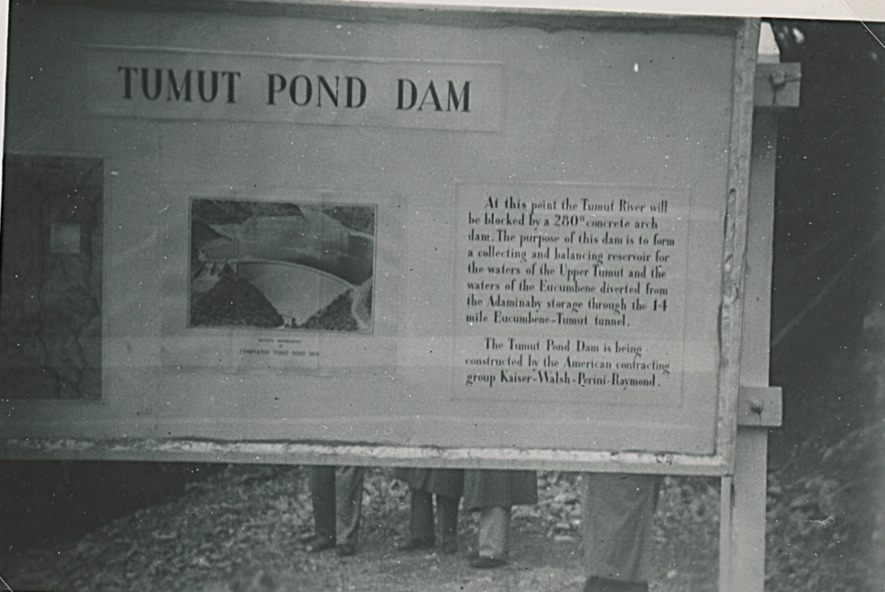 TUMUT POND DAM
COMPLETED TUMUT POND DAM
At this point the Tumut River will
be blocked by a 280° concrete arch
dam. The purpose of this dam is to form
a collecting and balancing reservoir for
the waters of the Upper Tumut and the
waters of the Eucumbene diverted from
the Adaminaby storage through the 14
mile Eucumbene-Tumut tunnel.
The Tumut Pond Dam is being
constructed by the American contracting
group Kaiser-Walsh-Perini-Raymond.